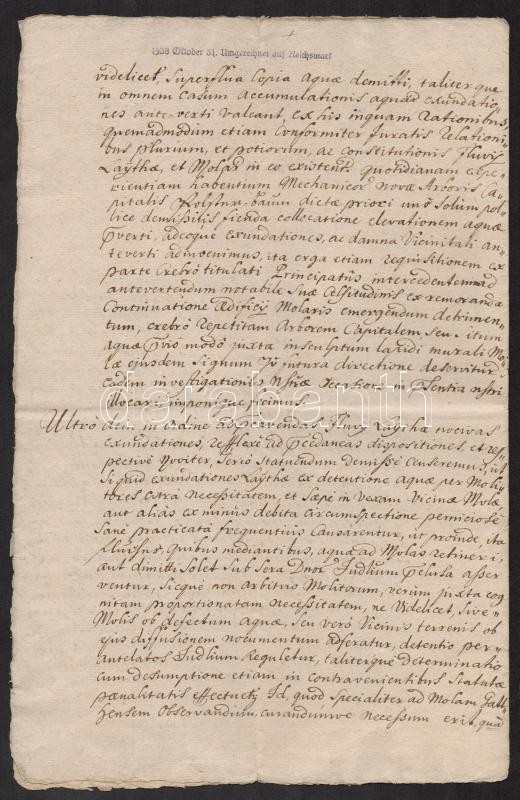 1938 Oktober 31. Umgerechnet auf Reichsmark
videlicet, superflua Copia aquæ demitti, taliterque
in omnem Casum accumulationis aquæ exundatio-
nes anteverti valeant, ex his inquam Rationibus,
quemadmodum etiam Conformiter Juratis relationi-
bus plurium, et potiorum, ac constitutionis Fluvij
Laythæ, et Molæ in eo existentis quotidianam expe-
rientiam habentium Mechanicor novæ Arboris Ca-
pitalis dictæ priori uno solum pol-
lice demissilis fienda collocatione elevationem aquæ
adeoque exundationes, ac damna Vicinitati an-
teverti adinvenimus, ita erga etiam requisitionem ex
parte Crebrotitulati Principatus intercedentem ad
antevertendum notabile Suæ Celsitudinis ex remoranda
Continuatione Ædificij Molaris emergendum detrimen-
tum, crebro repetitam Arborem Capitalem seu
aquæ modo juxta insculptum lapidi murali Mo-
læ ejusdem Signum futura directione
eadem investigationis occasione in præsentia nostri
illocari, imponique fecimus.
Ultro dein in ordine ad præcavendas Fluvij Laythæ nocivas
exundationes, reflexe ad dispositiones, et res-
pective serio Statuendum demisse censeremus, ut
Siquid exundationes Laythæ ex detentione aquæ per Moli-
tores citra necessitatem, et sæpe in vexam Vicinæ Molæ
aut alias ex minus debita circumspectione perniciose
sane practicata frequentius causarentur, ut proinde, ita
quibus mediantibus, aqua ad Molas retineri,
aut dimitti solet sub sera Dnor Judlium asser-
ventur, sicque non arbitrio Molitorum, verum juxta cog-
nitam proportionatam necessitatem, ne videlicet, sive
Molis ob defectum aquæ, seu vero Vicinis terrenis ob
ejus diffusionem nocumentum adferatur, detentio per
antelatos Judlium reguletur, taliterque determinatio
cum desumptione etiam in Contravenientibus Statutæ
pœnalitatis Id, quod specialiter ad Molam Gatt-
hensem observandum, curandumve necessum erit, quod
Darabanth